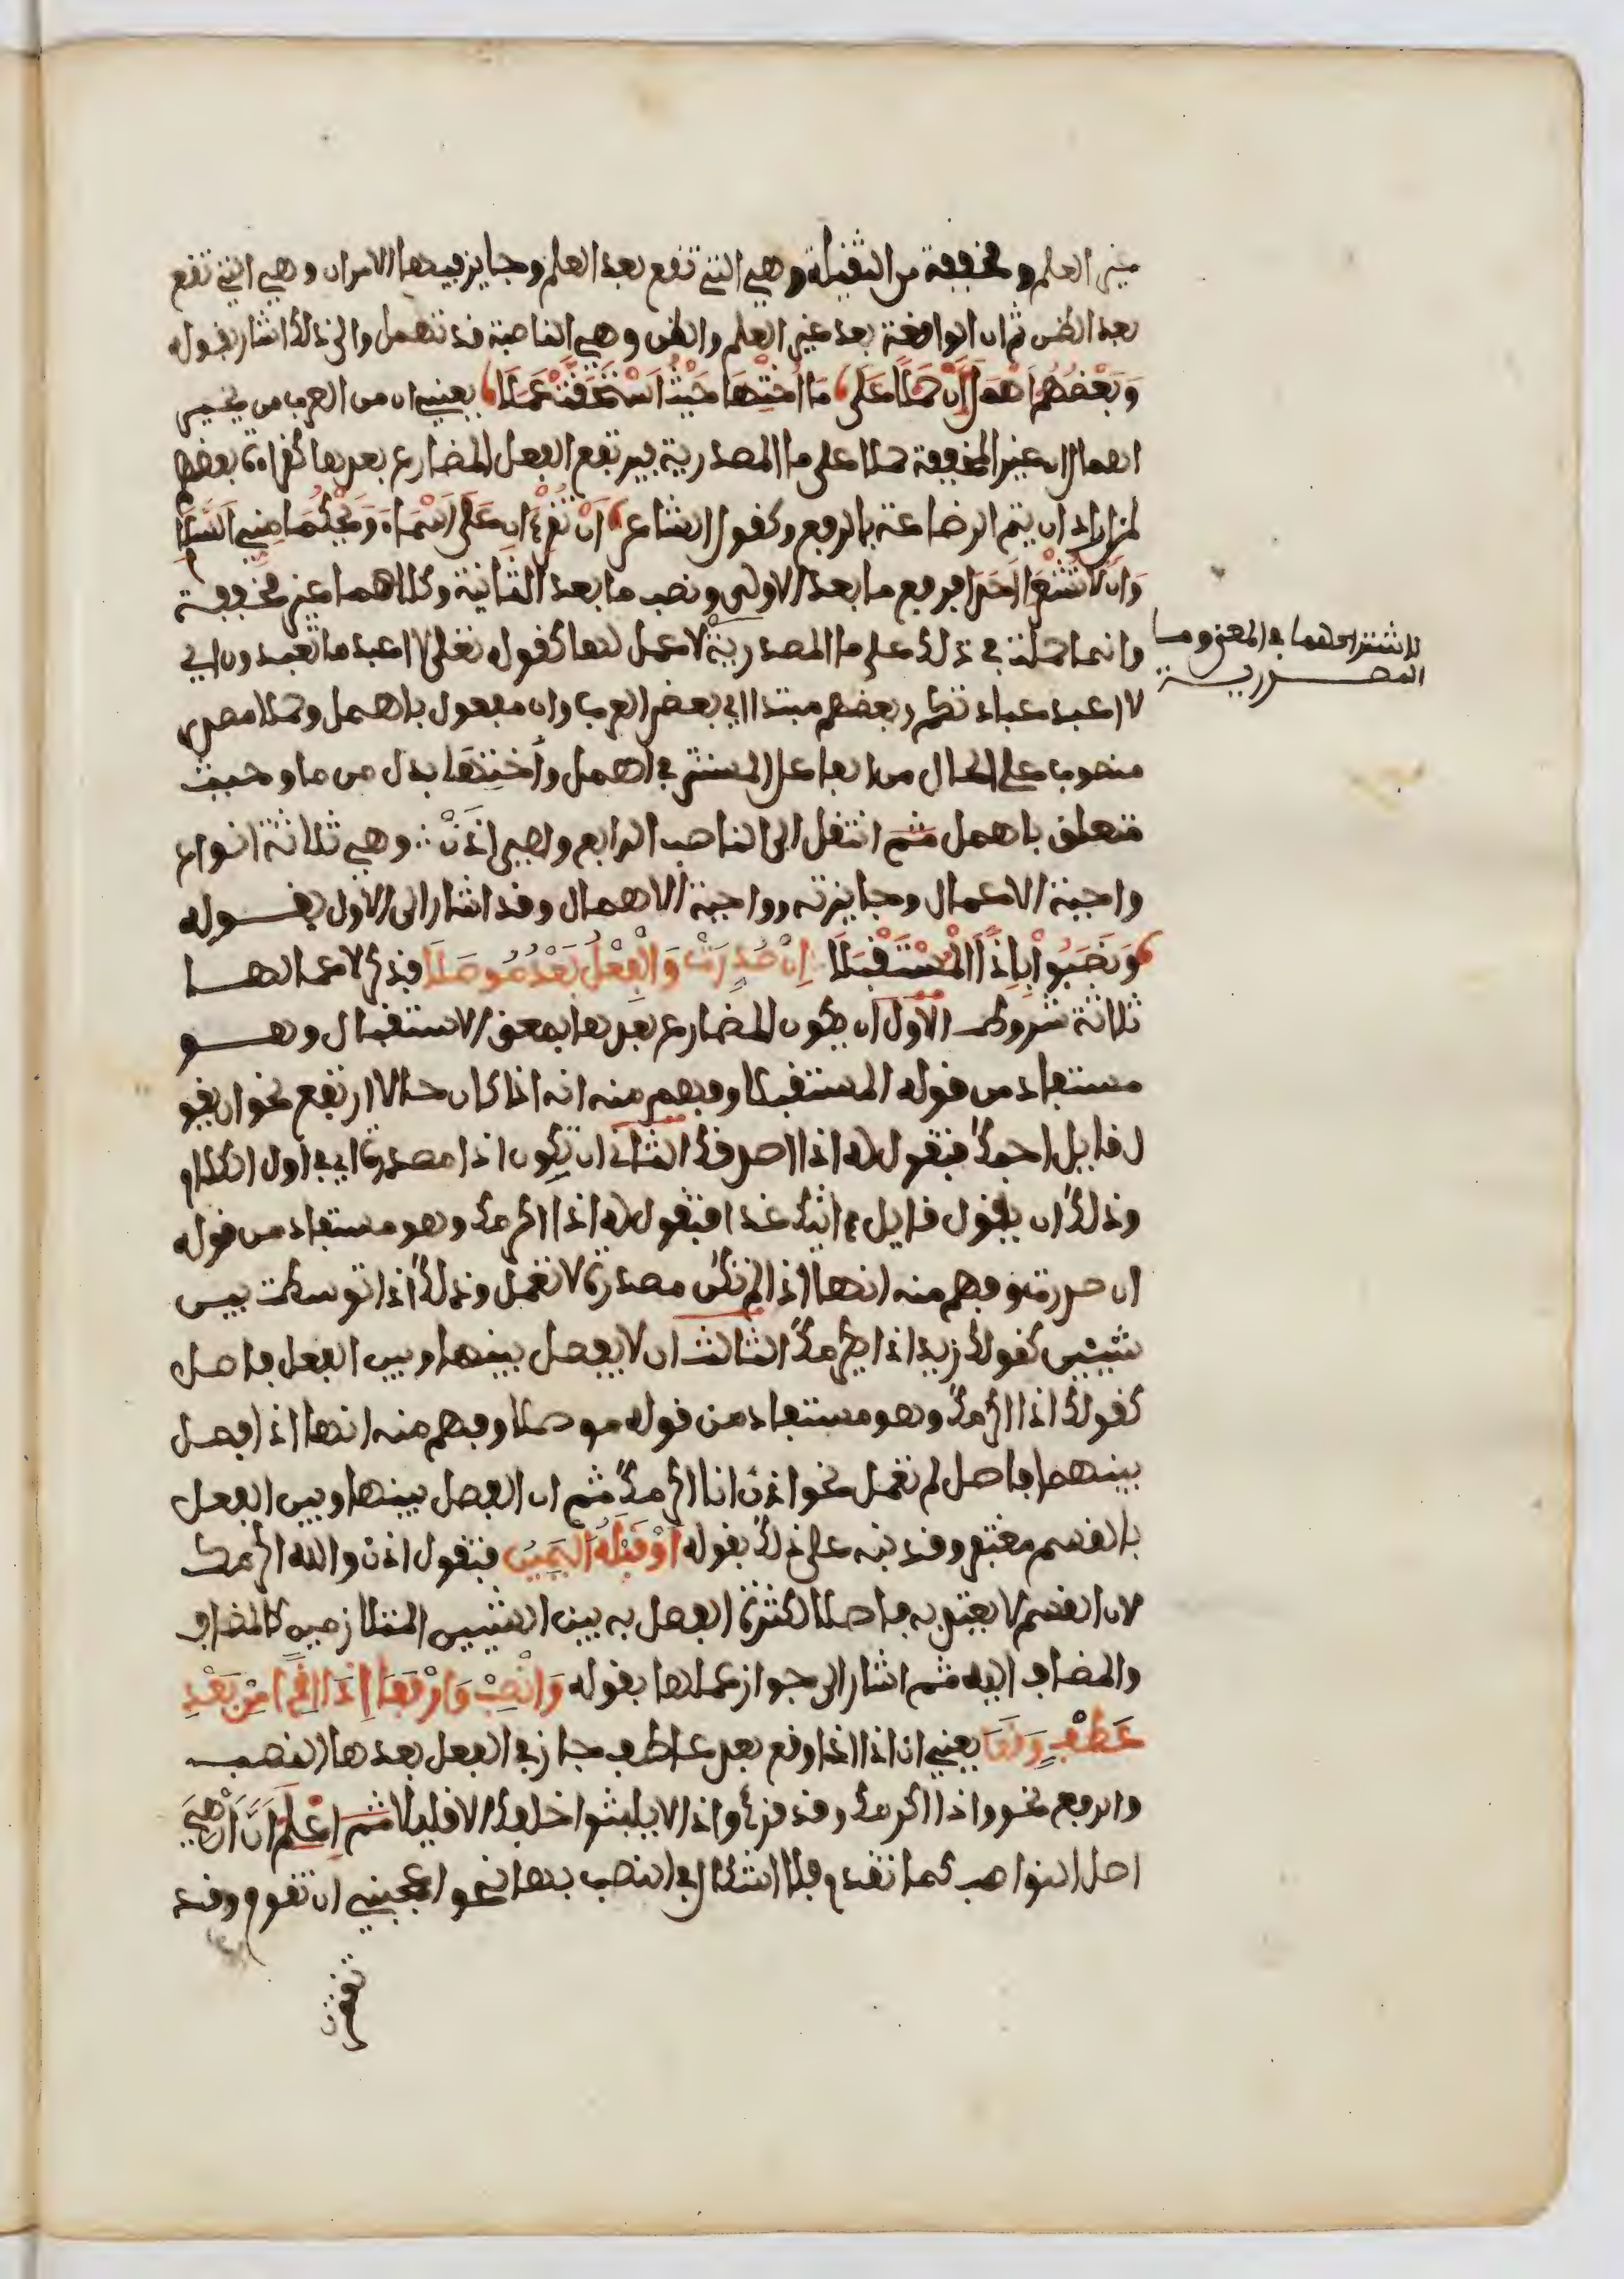 غير العلم ومخففة من الثقيلة وهي التي تقع بعد العلم وجايز فيها الامران وهي التي تقع
بعد الظن ثم ان الواقعة بعد غير العلم والظن وهي الناصبة قد تهمل والى ذلك اشار بقوله
وَبَعْضُهُم اَهْمَلَ اَنْ حَمْلًا عَلَى مَا اُخْتِهَا حَيْثُ اسْتَحَقَّتْ عَمَلَا يعني ان من العرب من يجيز
اهمال ان غير المخففة حملا على ما المصدرية فيرتفع الفعل المضارع بعدها كقراءة بعضهم
لمن اراد ان يتم الرضاعة بالرفع وكقول الشاعر اَنْ تَقْرَءَانِ عَلَى اَسْمَاءَ وَيْحَكُمَا مِنِّي السَّلَامَ
وَاَن لَا تُشْعِرَا اَحَدَا فرفع ما بعد الاولى ونصب ما بعد الثانية وكلاهما غير مخففة
وانما حملت في ذلك على ما المصدرية لا عمل لها كقوله تعلى لا اعبد ما تعبدون اي
لاشتراكهما في المعنى وما
المصدرية
لا اعبد عبادتكم وبعضهم مبتدا اي بعض العرب وان مفعول باهمل وحملا مصدر
منصوب على الحال من الفاعل المستتر في اهمل وأختها بدل من ما وحيث
متعلق باهمل ثم انتقل الى الناصب الرابع وهي اذن وهي ثلاثة انواع
واجبة الاعمال وجايزته وواجبة الاهمال وقد اشار الى الاول بقوله
وَنَصَبُوا بِإِذًا الْمُسْتَقْبَلَا اِن صُدِّرَتْ وَالْفِعْلُ بَعْدُ مُوصَلَا فذكر لاعمالها
ثلاثة شروط الاول ان يكون المضارع بعدها بمعنى الاستقبال وهو
مستفاد من قوله المستقبلا وفهم منه انه اذا كان حالا ارتفع نحو ان يقو
ل قايل احبك فتقول له اذا اصدقك الثاني ان تكون اذا مصدرة اي في اول الكلام
وذلك ان يقول قايل ءاتيك غدا فتقول له اذا اكرمك وهو مستفاد من قوله
ان صدرت وفهم منه انها اذا لم تكن مصدرة لا تعمل وذلك اذا توسطت بين
شيئين كقولك زيد اذا يكرمك الثالث ان لا يفصل بينها وبين الفعل فاصل
كقولك اذا اكرمك وهو مستفاد من قوله موصلا وفهم منه انها اذا فصل
بينهما فاصل لم تعمل نحو اذن انا اكرمك ثم ان الفصل بينها وبين الفعل
بالقسم مغتفر وقد نبه على ذلك بقوله اَوْ قَبْلَهُ الْيَمِينُ فتقول اذن والله اكرمك
لان القسم لا يعتد به فاصلا لكثرة الفصل به بين الشيئين المتلازمين كالمضاف
والمضاف اليه ثم اشار الى جواز عملها بقوله وَانْصِبْ وَارْفَعَا اِذَا اِذًا مِنْ بَعْدِ
عَطْفٍ وَقَعَا يعني ان اذا اذا وقع بعد عاطف جاز في الفعل بعدها النصب
والرفع نحو واذا اكرمك وقد قرئ واذا لا يلبثوا خلافك الا قليلا ثم اعْلَمْ اَنَّ اَنْ هِيَ
اصل النواصب كما تقدم فلا اشكال في النصب بها نحو اعجبني ان تقوم وقد